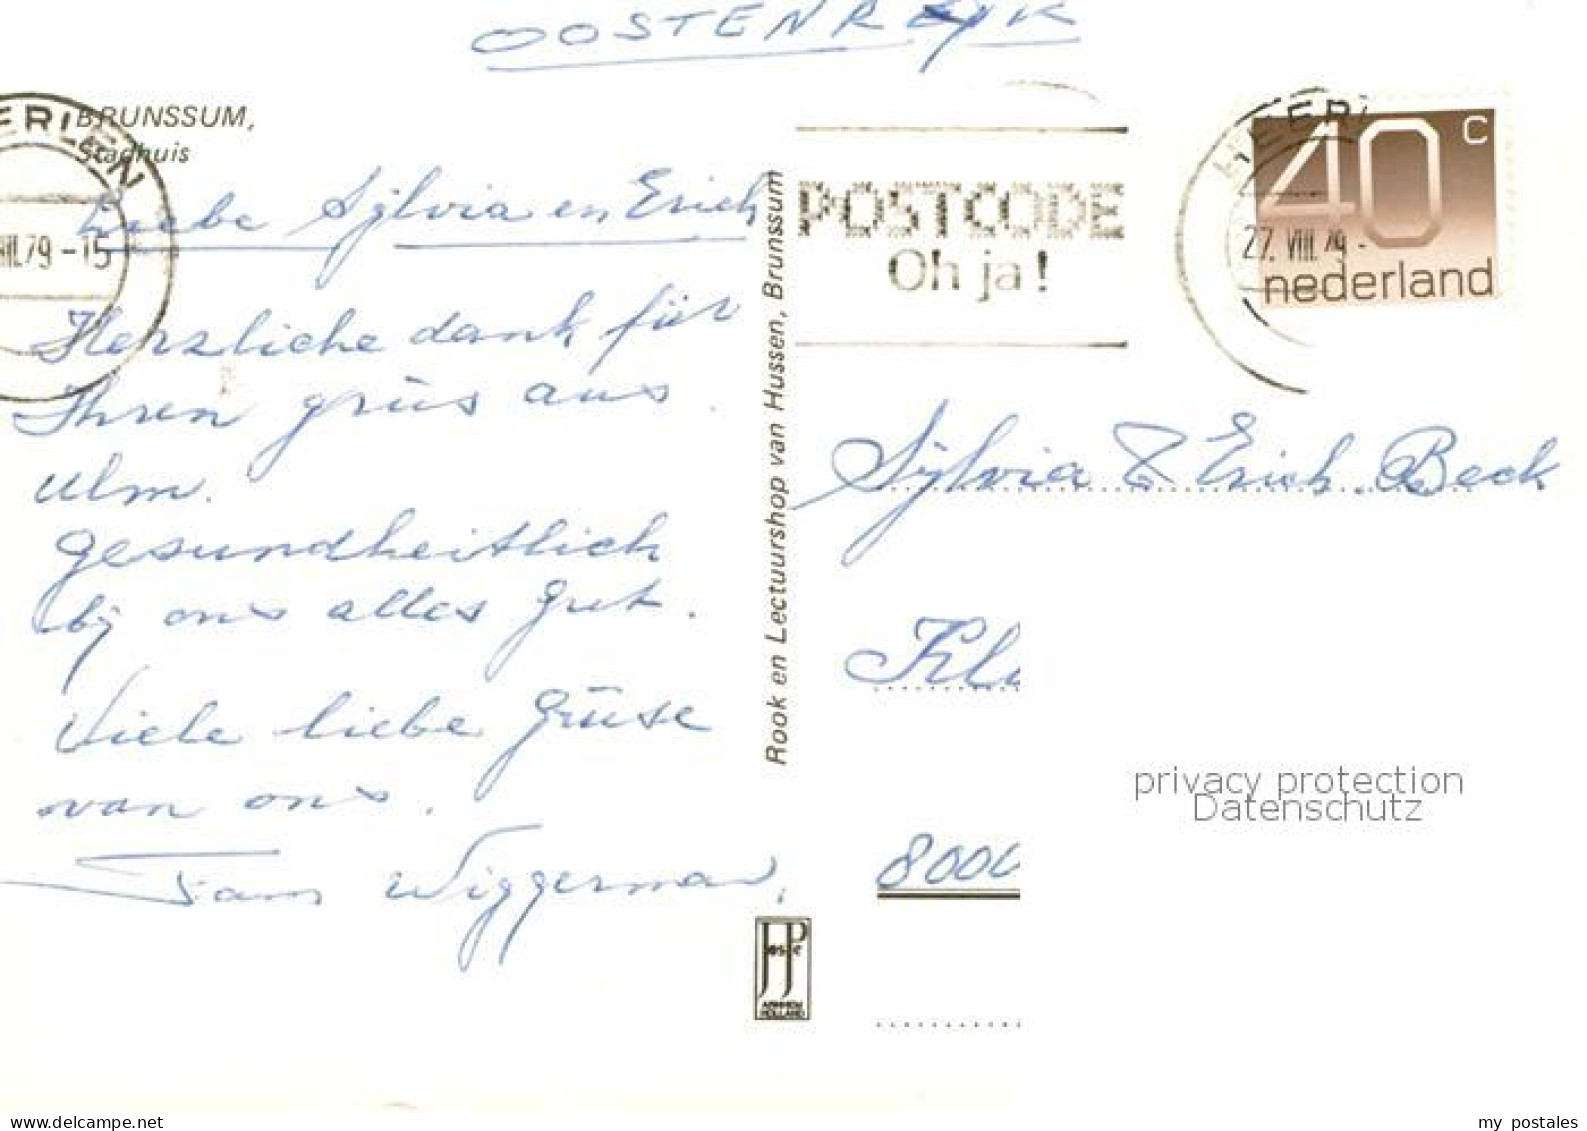 OOSTENRIJK
BRUNSSUM,
Stadhuis
HEERLEN
VIII.79-15
Liebe Sÿlvia en Erich
Herzliche dank für
Ihren grüs aus
ulm.
gesundheitlich
bij ons alles gut.
Viele liebe Grüse
van ons.
Fam Wiggerman,
Rook en Lectuurshop van Hussen, Brunssum
JosPé
ARNHEM
HOLLAND
POSTCODE
Oh ja!
HEERL
27.VIII.79-
40 c
nederland
Sÿlvia & Erich Beck
privacy protection
Datenschutz
www.delcampe.net
my_postales